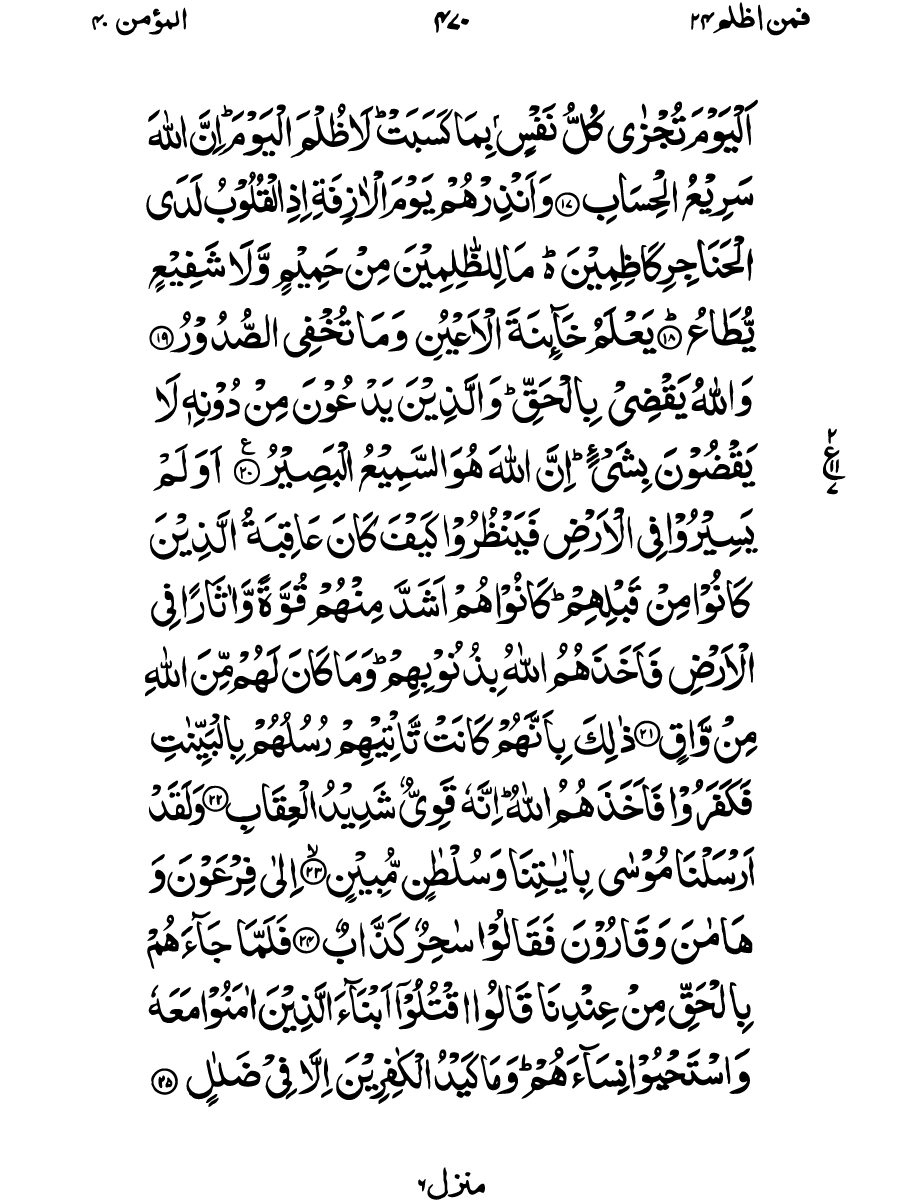 فمن اظلم ۲۴
۴۷۰
المؤمن ۴۰
اَلْيَوْمَ تُجْزٰى كُلُّ نَفْسٍۭ بِمَا كَسَبَتْ ؕ لَا ظُلْمَ الْيَوْمَ ؕ اِنَّ اللّٰهَ
سَرِيْعُ الْحِسَابِ ﴿۱۷﴾ وَاَنْذِرْهُمْ يَوْمَ الْاٰزِفَةِ اِذِ الْقُلُوْبُ لَدَى
الْحَنَاجِرِ كَاظِمِيْنَ ؕ مَا لِلظّٰلِمِيْنَ مِنْ حَمِيْمٍ وَّلَا شَفِيْعٍ
يُّطَاعُ ﴿۱۸﴾ؕ يَعْلَمُ خَآئِنَةَ الْاَعْيُنِ وَمَا تُخْفِى الصُّدُوْرُ ﴿۱۹﴾
وَاللّٰهُ يَقْضِىْ بِالْحَقِّ ؕ وَالَّذِيْنَ يَدْعُوْنَ مِنْ دُوْنِهٖ لَا
يَقْضُوْنَ بِشَىْءٍ ؕ اِنَّ اللّٰهَ هُوَ السَّمِيْعُ الْبَصِيْرُ ﴿۲۰﴾ع اَوَلَمْ
۲ ع ۱۱ ۷
يَسِيْرُوْا فِى الْاَرْضِ فَيَنْظُرُوْا كَيْفَ كَانَ عَاقِبَةُ الَّذِيْنَ
كَانُوْا مِنْ قَبْلِهِمْ ؕ كَانُوْا هُمْ اَشَدَّ مِنْهُمْ قُوَّةً وَّاٰثَارًا فِى
الْاَرْضِ فَاَخَذَهُمُ اللّٰهُ بِذُنُوْبِهِمْ ؕ وَمَا كَانَ لَهُمْ مِّنَ اللّٰهِ
مِنْ وَّاقٍ ﴿۲۱﴾ ذٰلِكَ بِاَنَّهُمْ كَانَتْ تَّاْتِيْهِمْ رُسُلُهُمْ بِالْبَيِّنٰتِ
فَكَفَرُوْا فَاَخَذَهُمُ اللّٰهُ ؕ اِنَّهٗ قَوِىٌّ شَدِيْدُ الْعِقَابِ ﴿۲۲﴾ وَلَقَدْ
اَرْسَلْنَا مُوْسٰى بِاٰيٰتِنَا وَسُلْطٰنٍ مُّبِيْنٍ ﴿۲۳﴾ۙ اِلٰى فِرْعَوْنَ وَ
هَامٰنَ وَقَارُوْنَ فَقَالُوْا سٰحِرٌ كَذَّابٌ ﴿۲۴﴾ فَلَمَّا جَآءَهُمْ
بِالْحَقِّ مِنْ عِنْدِنَا قَالُوا اقْتُلُوْۤا اَبْنَآءَ الَّذِيْنَ اٰمَنُوْا مَعَهٗ
وَاسْتَحْيُوْا نِسَآءَهُمْ ؕ وَمَا كَيْدُ الْكٰفِرِيْنَ اِلَّا فِىْ ضَلٰلٍ ﴿۲۵﴾
منزل ۶